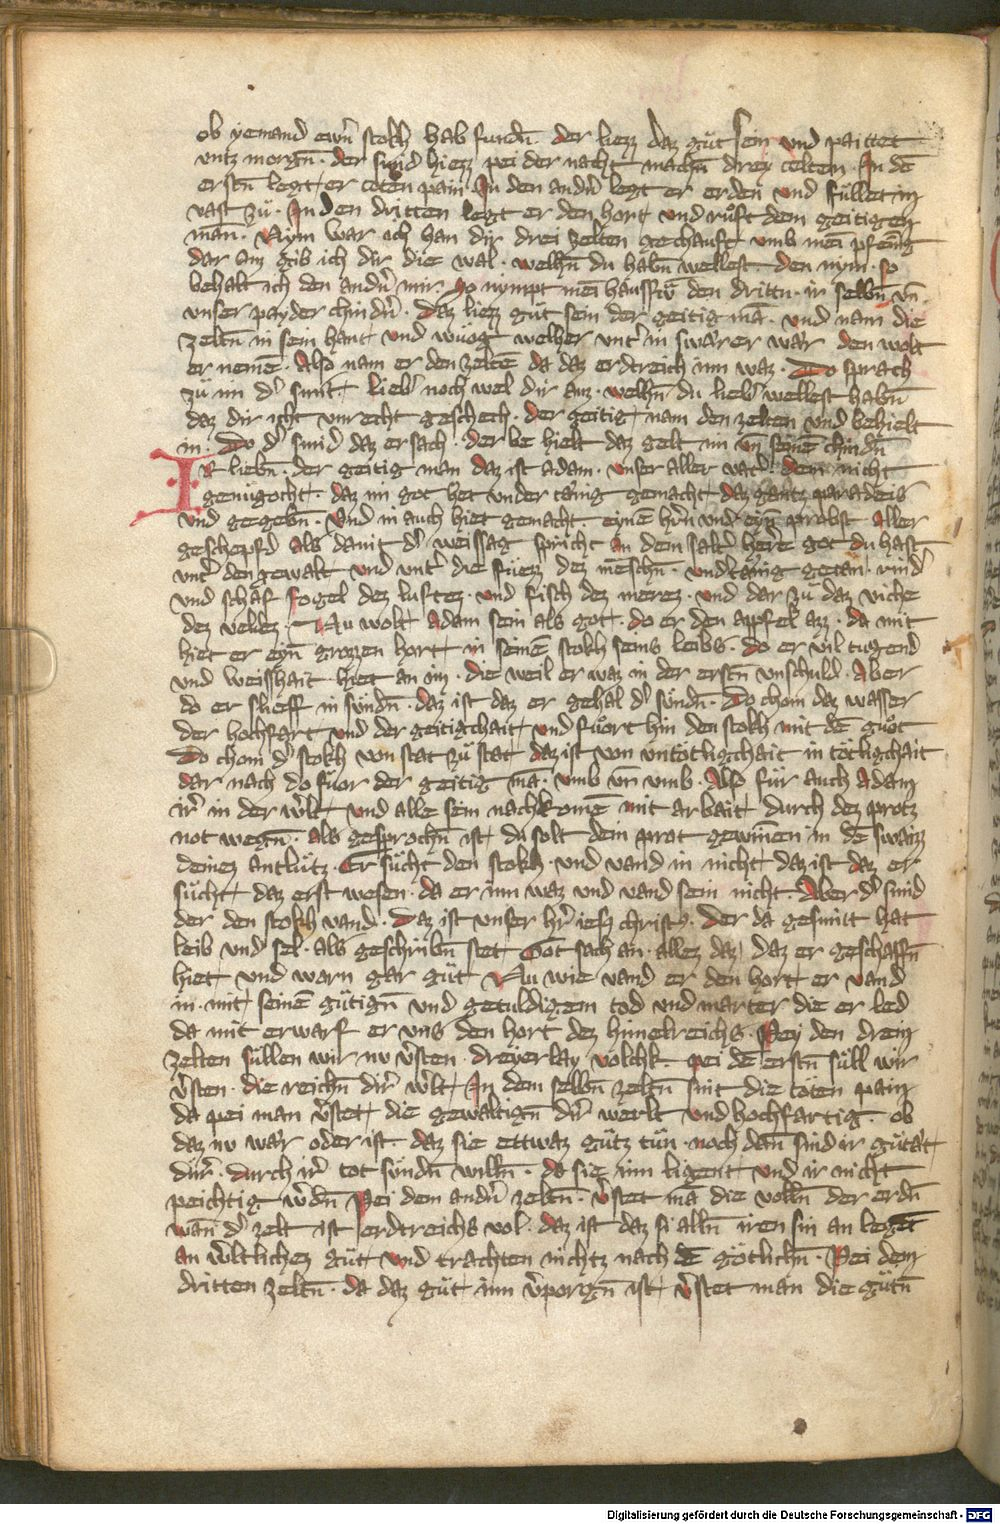 ob yemand ewrn̄ stokh hab fundn̄ · der liezz daz gůt sein vnd paittet
vntz morgn̄ · der smid hiezz pei der nacht machn̄ drey zelten · In dē
erstn̄ legt er toten pain · In den andn̄ legt er erden vnd füllet in
vast zů · In den dritten legt er den hort vnd růft dem geitigen
man · Nym war ich han dir drei zelten gechauft vmb mein pfenīg
dar auz gib ich dir die wal · welhn̄ du habn̄ wellest · den nym · so
behalt ich den andn̄ mir · So nympt mein hausfrw̄ den drittn · ir selbn̄ vn̄
vnser payder chindn̄ · Daz liezz gůt sein der geitig mā · vnd nam die
zeltn̄ in sein hant vnd wůog welher vntˀ in swårer wår den wolt
er nemē · Also nam er den zeltē da daz erdtreich inn waz · Do sprach
zů im dˀ smit · liebˀ noch wel dir auz · welhn̄ du liebˀ wellest habn̄
daz dir icht vnrecht geschech · der geitig nam den zelten vnd behielt
in · Do dˀ smid daz ersach · der behielt daz gelt im vn̄ seinē chindn̄
IR liebn̄ · der geitig man daz ist adam · vnser aller vatˀ · dem nicht
genůgocht · daz im got het vnder tånig gemacht daz gantz paradeis
vnd gegebn̄ · Vnd in auch hiet gemacht · eynē hrn̄ vnd eyn̄ probst aller
geschepfd als dauit dˀ weissag spricht an dem saltˀ herre got du hast
vntˀ den gewalt vnd vntˀ die füezz dez menschn̄ · vndtånig getan · rindˀ
vnd schaf fogel dez luftez · vnd fisch dez merez · vnd dar zů daz viche
dez veldez · Nu wolt Adam sein als got · do er den apfel azz · da mit
hiet er eyn̄ grozzen hort in seinē stokh seins leibs · do er vil tugend
vnd weisshait hiet an im · die weil er waz in der erstn̄ vnschuld · Aber
do er slieff in sündn̄ · daz ist daz er gehal dˀ sündn̄ · Do chom daz wasser
der hochfart vnd der geitigchait vnd fůort hin den stokh mit dē gůot
Do chom dˀ stokh von stat zů stat daz ist von vntötligchait in tötligchait
dar nach do fůor der geitig mā · vmb vn̄ vmb · Also für auch Adam
irr in der wˀlt vnd alle sein nachkomē mit arbait durch dez protz
not wegn̄ · als gesprochn̄ ist du solt dein prot gewinnen in dē swaizz
deinez antlütz · Er sůcht den stokh · vnd vand in nicht daz ist daz er
sůcht daz erst wesen · da er inn waz vnd vand sein nicht · Aber dˀ smid
der den stokh vand · Daz ist vnser hrˀ iesus christus · Der da gesmitt hat
leib vnd sel · als geschribn̄ stet Got sach an · allez daz daz er geschaffn̄
hiet vnd warn gar gůt Nu wie vand er den hort er vand
in · mit seinē gůtign̄ vnd getuldigem tod vnd marter die er led
da mit erwarf er vns den hort dez himelreichs · Pey den drein
zelten süllen wir nv vˀsten · dreyerlay volchk · pei dē erstn̄ süll wir
vˀsten · die reichn̄ dirˀ wˀlt In dem selbn̄ zeltn̄ sint die töten pain
da pei man vˀstet die gewaltign̄ dirˀ werlt vnd hochfartig · ob
daz nv wår oder ist · daz sie ettwaz gůtz tůn · noch dañ sind ir gůtåt
dürr · durch irˀ tot sündn̄ willn̄ · da sie inn ligent vnd ir nicht
peichtig wˀdn̄ Pei dem andn̄ zeltn̄ · vˀstet mā die volln̄ der erdn̄
wan̄ dˀ zelt ist erdtreichs vol · daz ist daz si alln̄ iren sin an legēt
an wˀltlichez gůt vnd trachten nichtz nach dē götlichn̄ · Pei dem
dritten zeltn̄ · da daz gůt inn vˀporign̄ ist vˀstet man die gůtn̄
Digitalisierung gefördert durch die Deutsche Forschungsgemeinschaft - DFG